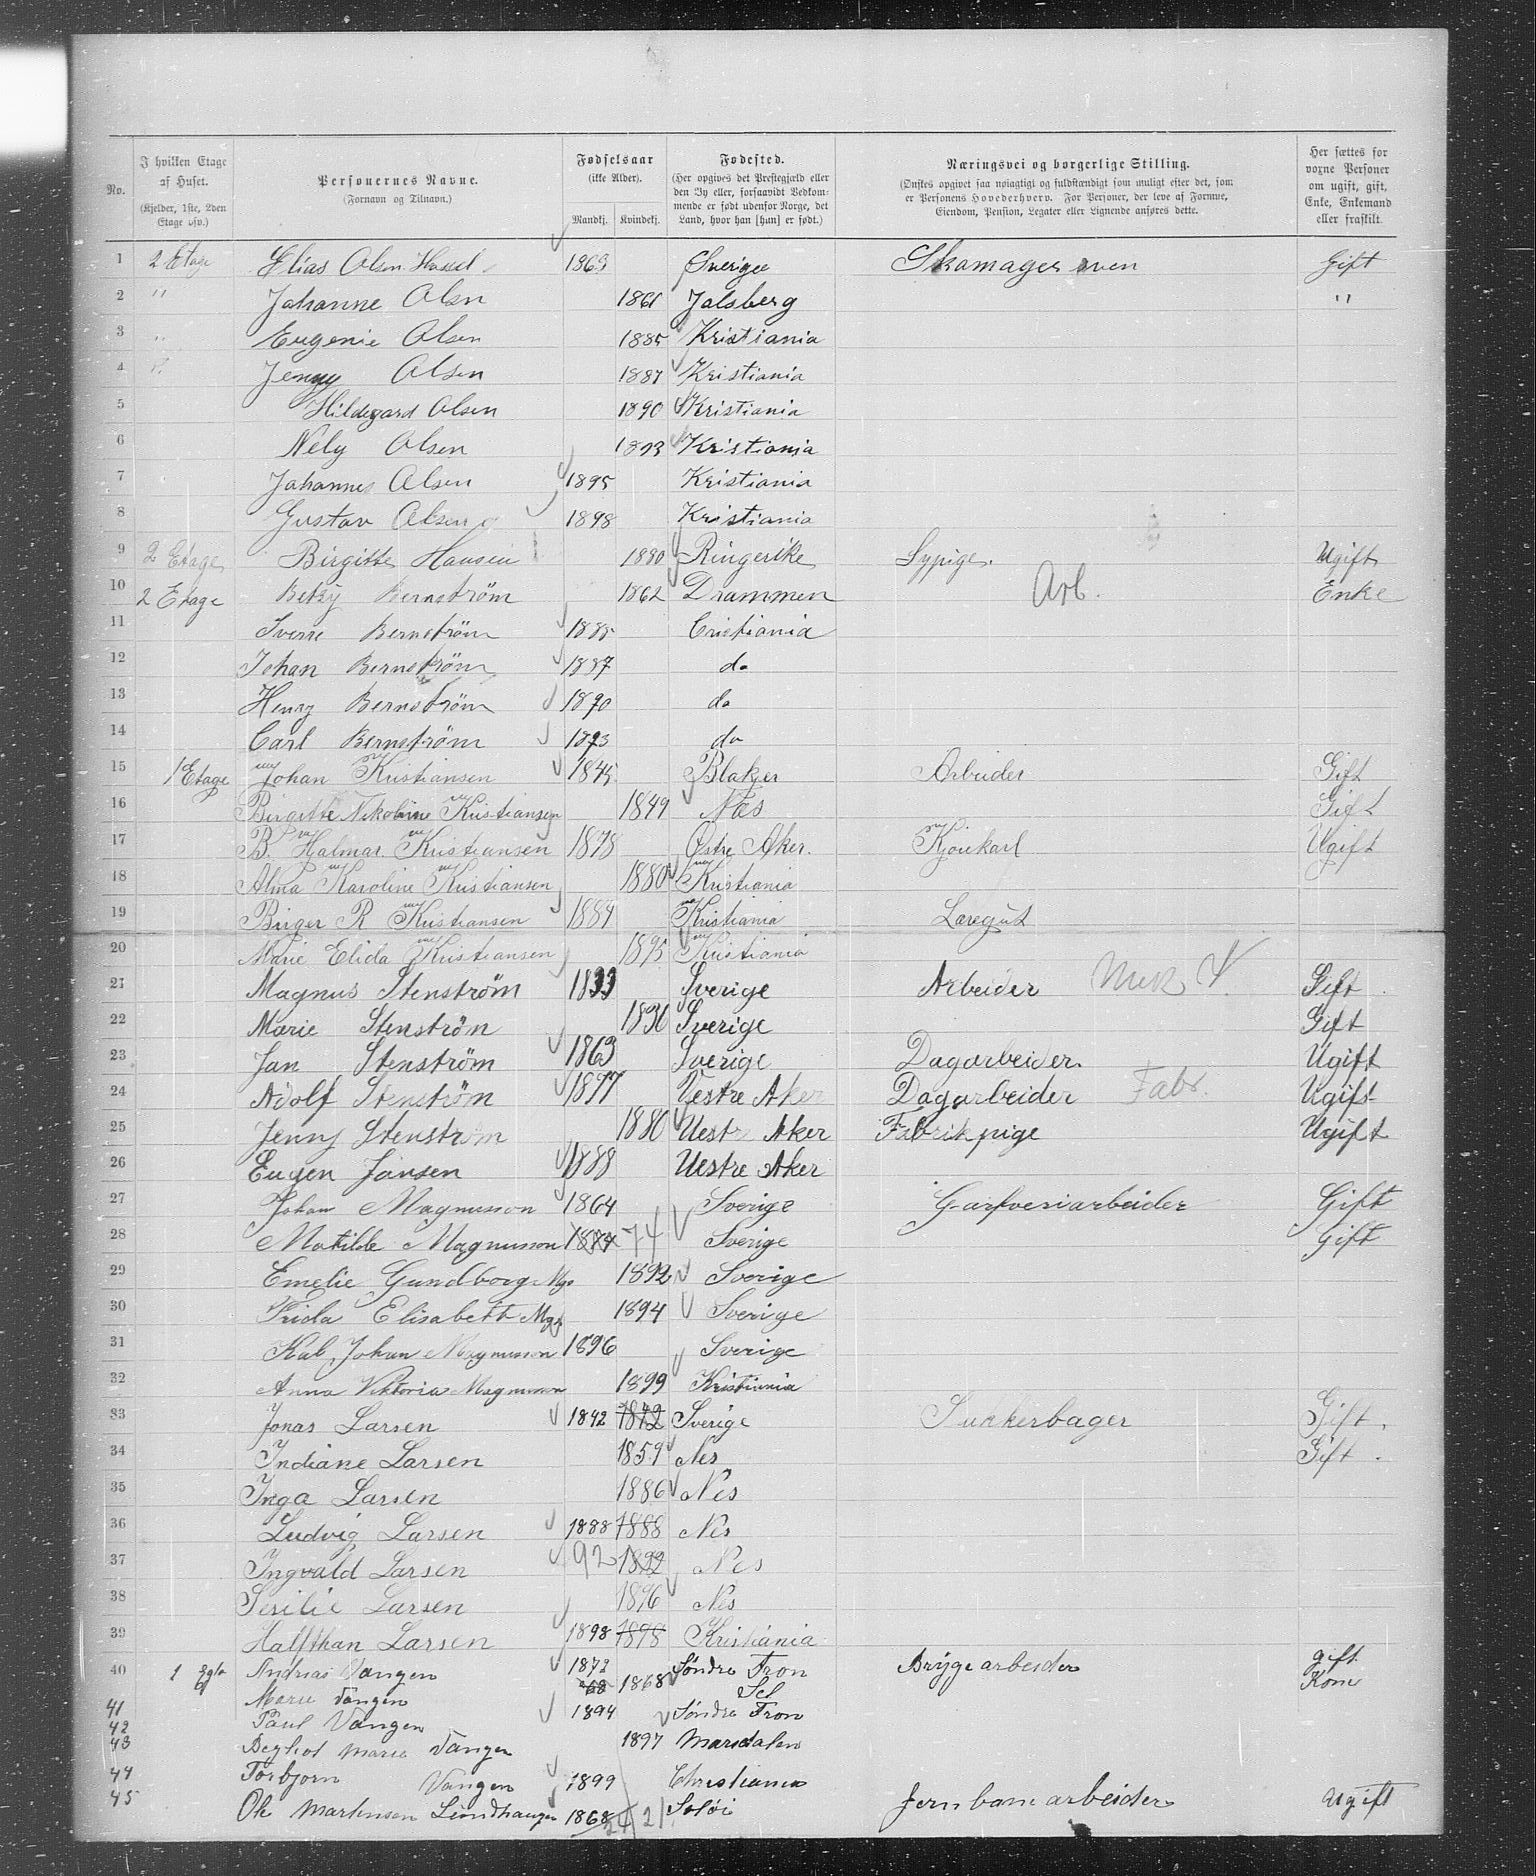 No. I hvilken Etage af Huset. (Kjelder, 1ste, 2den Etage osv.) Personernes Navne. (Fornavn og Tilnavn.) Fødselsaar (ikke Alder). Mandkj. Kvindekj. Fødested. (Her opgives det Prestegjæld eller den By eller, forsaavidt Vedkommende er født udenfor Norge, det Land, hvor han [hun] er født.) Næringsvei og borgerlige Stilling. (Ønskes opgivet saa nøiagtigt og fuldstændigt som muligt efter det, som er Personens Hovederhverv. For Personer, der leve af Formue, Eiendom, Pension, Legater eller Lignende anføres dette. Her sættes for voxne Personer om ugift, gift, Enke, Enkemand eller fraskilt.
1 2 Etage Elias Olsen Hassel 1863 Sverige Skomagersven Gift
2 " Johanne Olsn 1861 Jalsberg "
3 " Eugenie Olsen 1885 Kristiania
4 " Jenny Olsen 1887 Kristiania
5 Hildegard Olsen 1890 Kristiania
6 Nely Olsen 1893 Kristiania
7 Johannes Olsen 1895 Kristiania
8 Gustav Olsen 1898 Kristiania
9 2 Etage Birgitte Hansen 1880 Ringerike Sypige. Ugift
10 2 Etage Betsy Bernström 1862 Drammen Arb. Enke
11 Sverre Bernström 1885 Cristiania
12 Johan Bernström 1887 do
13 Henry Bernström 1890 do
14 Carl Bernström 1893 do
15 1 Etage Johan Kristiansen 1845 Blaker Arbeider Gift
16 Birgitte Nikoline Kristiansen 1849 Næs Gift
17 B. Halmar Kristiansen 1878 Østre Aker. Kjørekarl Ugift
18 Alma Karoline Kristiansen 1880 Kristiania
19 Birger R Kristiansen 1884 Kristiania Laregut
20 Marie Elida Kristiansen 1895 Kristiania
21 Magnus Stenström 1833 Sverige Arbeider Mek V Gift
22 Marie Stenström 1830 Sverige Gift
23 Jan Stenström 1863 Sverige Dagarbeider. Ugift
24 Adolf Stenström 1877 Vestre Aker Dagarbeider Fabr. Ugift
25 Jenny Stenström 1880 Vestre Aker Fabrikpige Ugift
26 Eugen Jansen 1888 Vestre Aker
27 Johan Magnusson 1864 Sverige Garfveriarbeider Gift
28 Matilde Magnusson 1874 74 Sverige Gift
29 Emelie Gundborg Mgs 1892 Sverige
30 Frida Elisabett Mgs 1894 Sverige
31 Kal Johan Magnusson 1896 Sverige
32 Anna Viktoria Magnusson 1899 Kristiania
33 Jonas Larsen 1842 1842 Sverige Sukkerbager Gift.
34 Indiane Larsen 1859 Nes Gift.
35 Inga Larsen 1886 Nes
36 Ludvig Larsen 1888 1888 Nes
37 Ingvald Larsen 92 1892 Nes
38 Sesilie Larsen 1896 Nes
39 Halfthan Larsen 1898 1898 Kristiania
40 1 Etg Andreas Vangen 1872 Søndre Fron Bryggearbeider gift
41 Marie Vangen 68 1868 Sel Kone
42 Paul Vangen 1894 Søndre Fron
43 Marie Vangen 1897
44 Torbjorn Vangen 1899 Christiania
45 Ole Martensen 1868 24 21 Soløi Jernbanearbeider Ugift